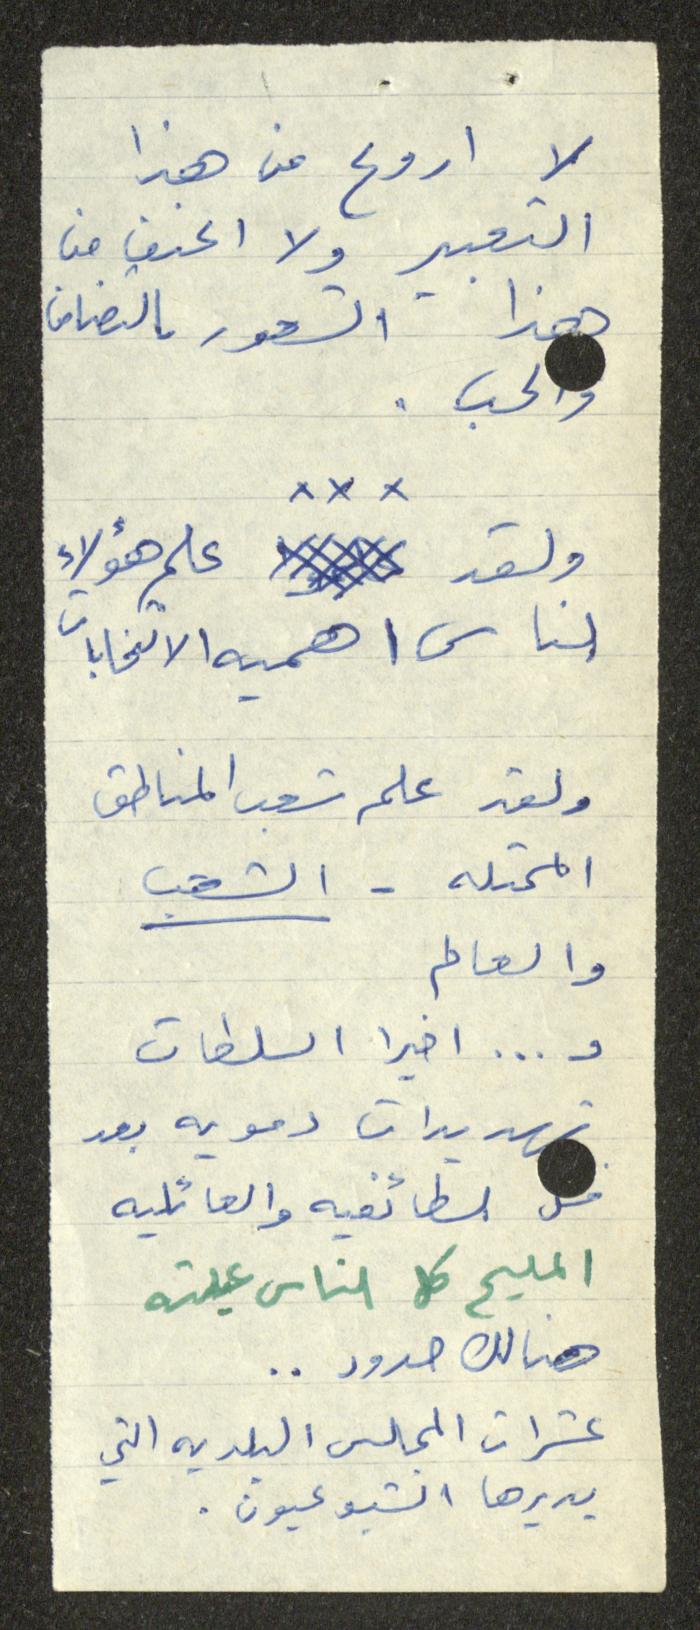 لا اروع من هذا
التعبير ولا اعنف من
هذا الشعور بالتضامن
والحب .
× × ×
ولقد علم هؤلاء
الناس اهميه الانتخابات
ولقد علم شعب المناطق
المحتله - الشعب
والعالم
و ... اخيرا السلطات
تهديدات دمويه بعد
فشل الطائفيه والعائليه
المليح كل الناس عيلته
هنالك حدود ..
عشرات المجالس البلديه التي
يديرها الشيوعيون .